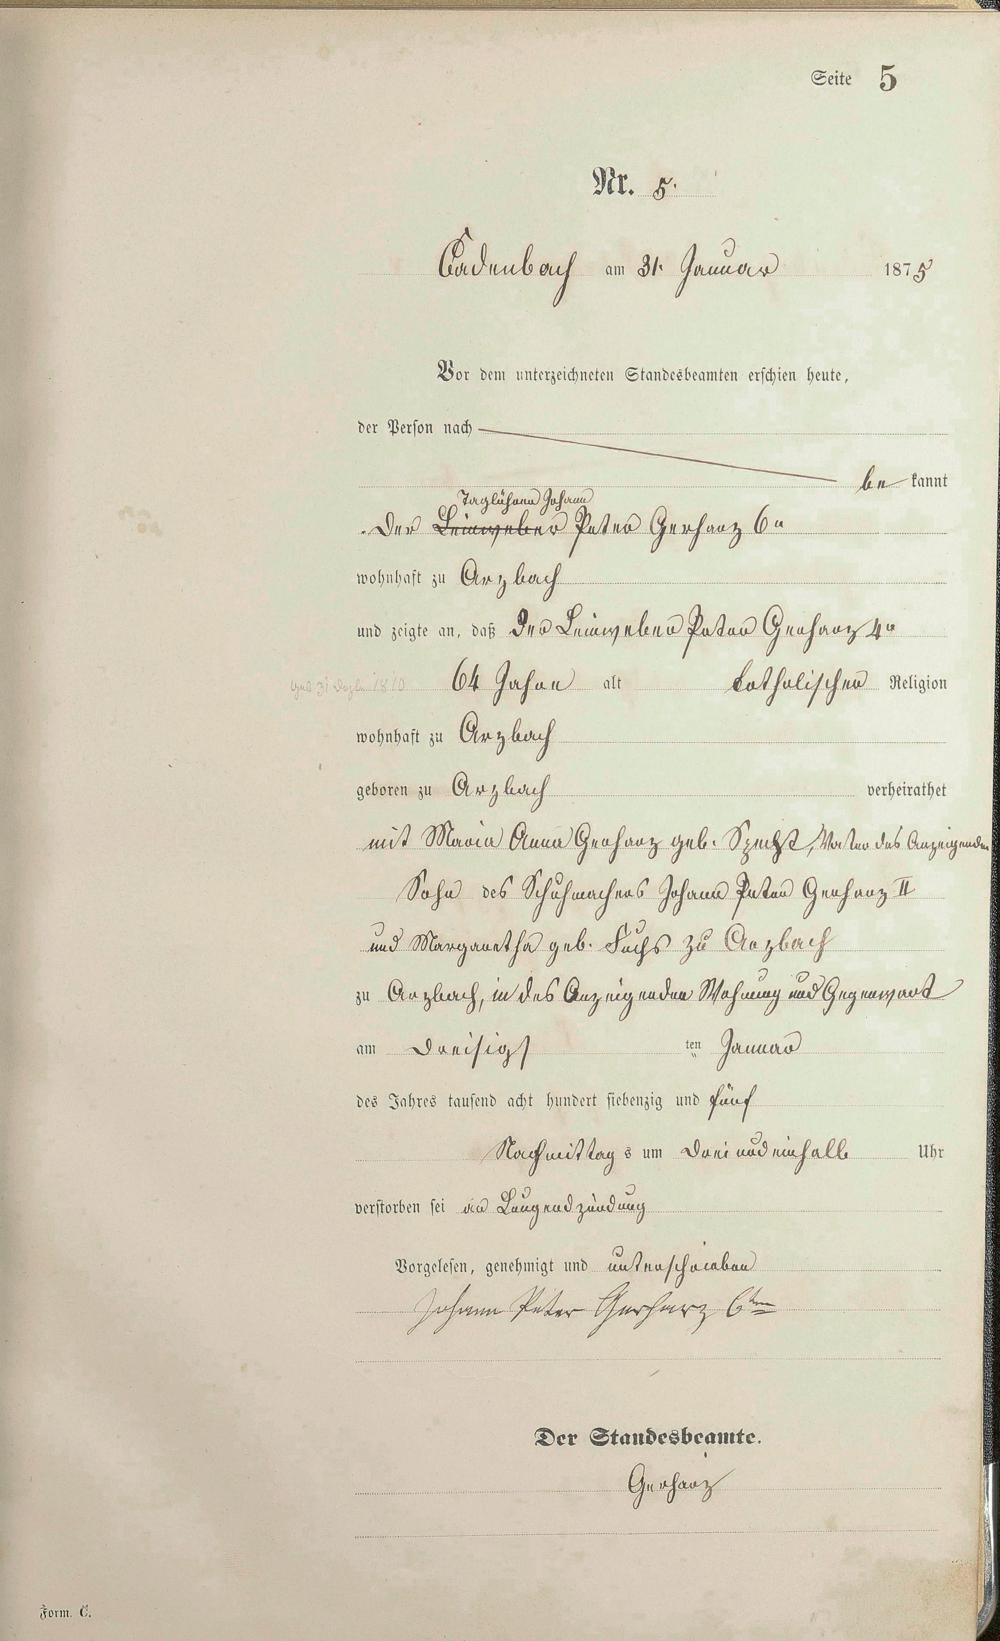 Seite 5
Nr. 5.
Cadenbach am 31. Januar 1875
Vor dem unterzeichneten Standesbeamten erschien heute,
der Person nach
be kannt
Taglöhner Johann
Der Leinweber Peter Gerharz 6r
wohnhaft zu Arzbach
und zeigte an, daß der Leinweber Peter Gerharz 4r
64 Jahre alt katholischer Religion
wohnhaft zu Arzbach
geboren zu Arzbach verheirathet
mit Maria Anna Gerharz geb. Specht, Vater des Anzeigenden
Sohn des Schuhmachers Johann Peter Gerharz II
und Margaretha geb. Fuchs zu Arzbach
zu Arzbach, in des Anzeigenden Wohnung und Gegenwart
am dreisigs ten Januar
des Jahres tausend acht hundert siebenzig und fünf
Nachmittag s um drei und einhalb Uhr
verstorben sei an Lungendzündung
Vorgelesen, genehmigt und unterschrieben
Johann Peter Gerharz 6ter
Der Standesbeamte.
Gerharz
Form. C.